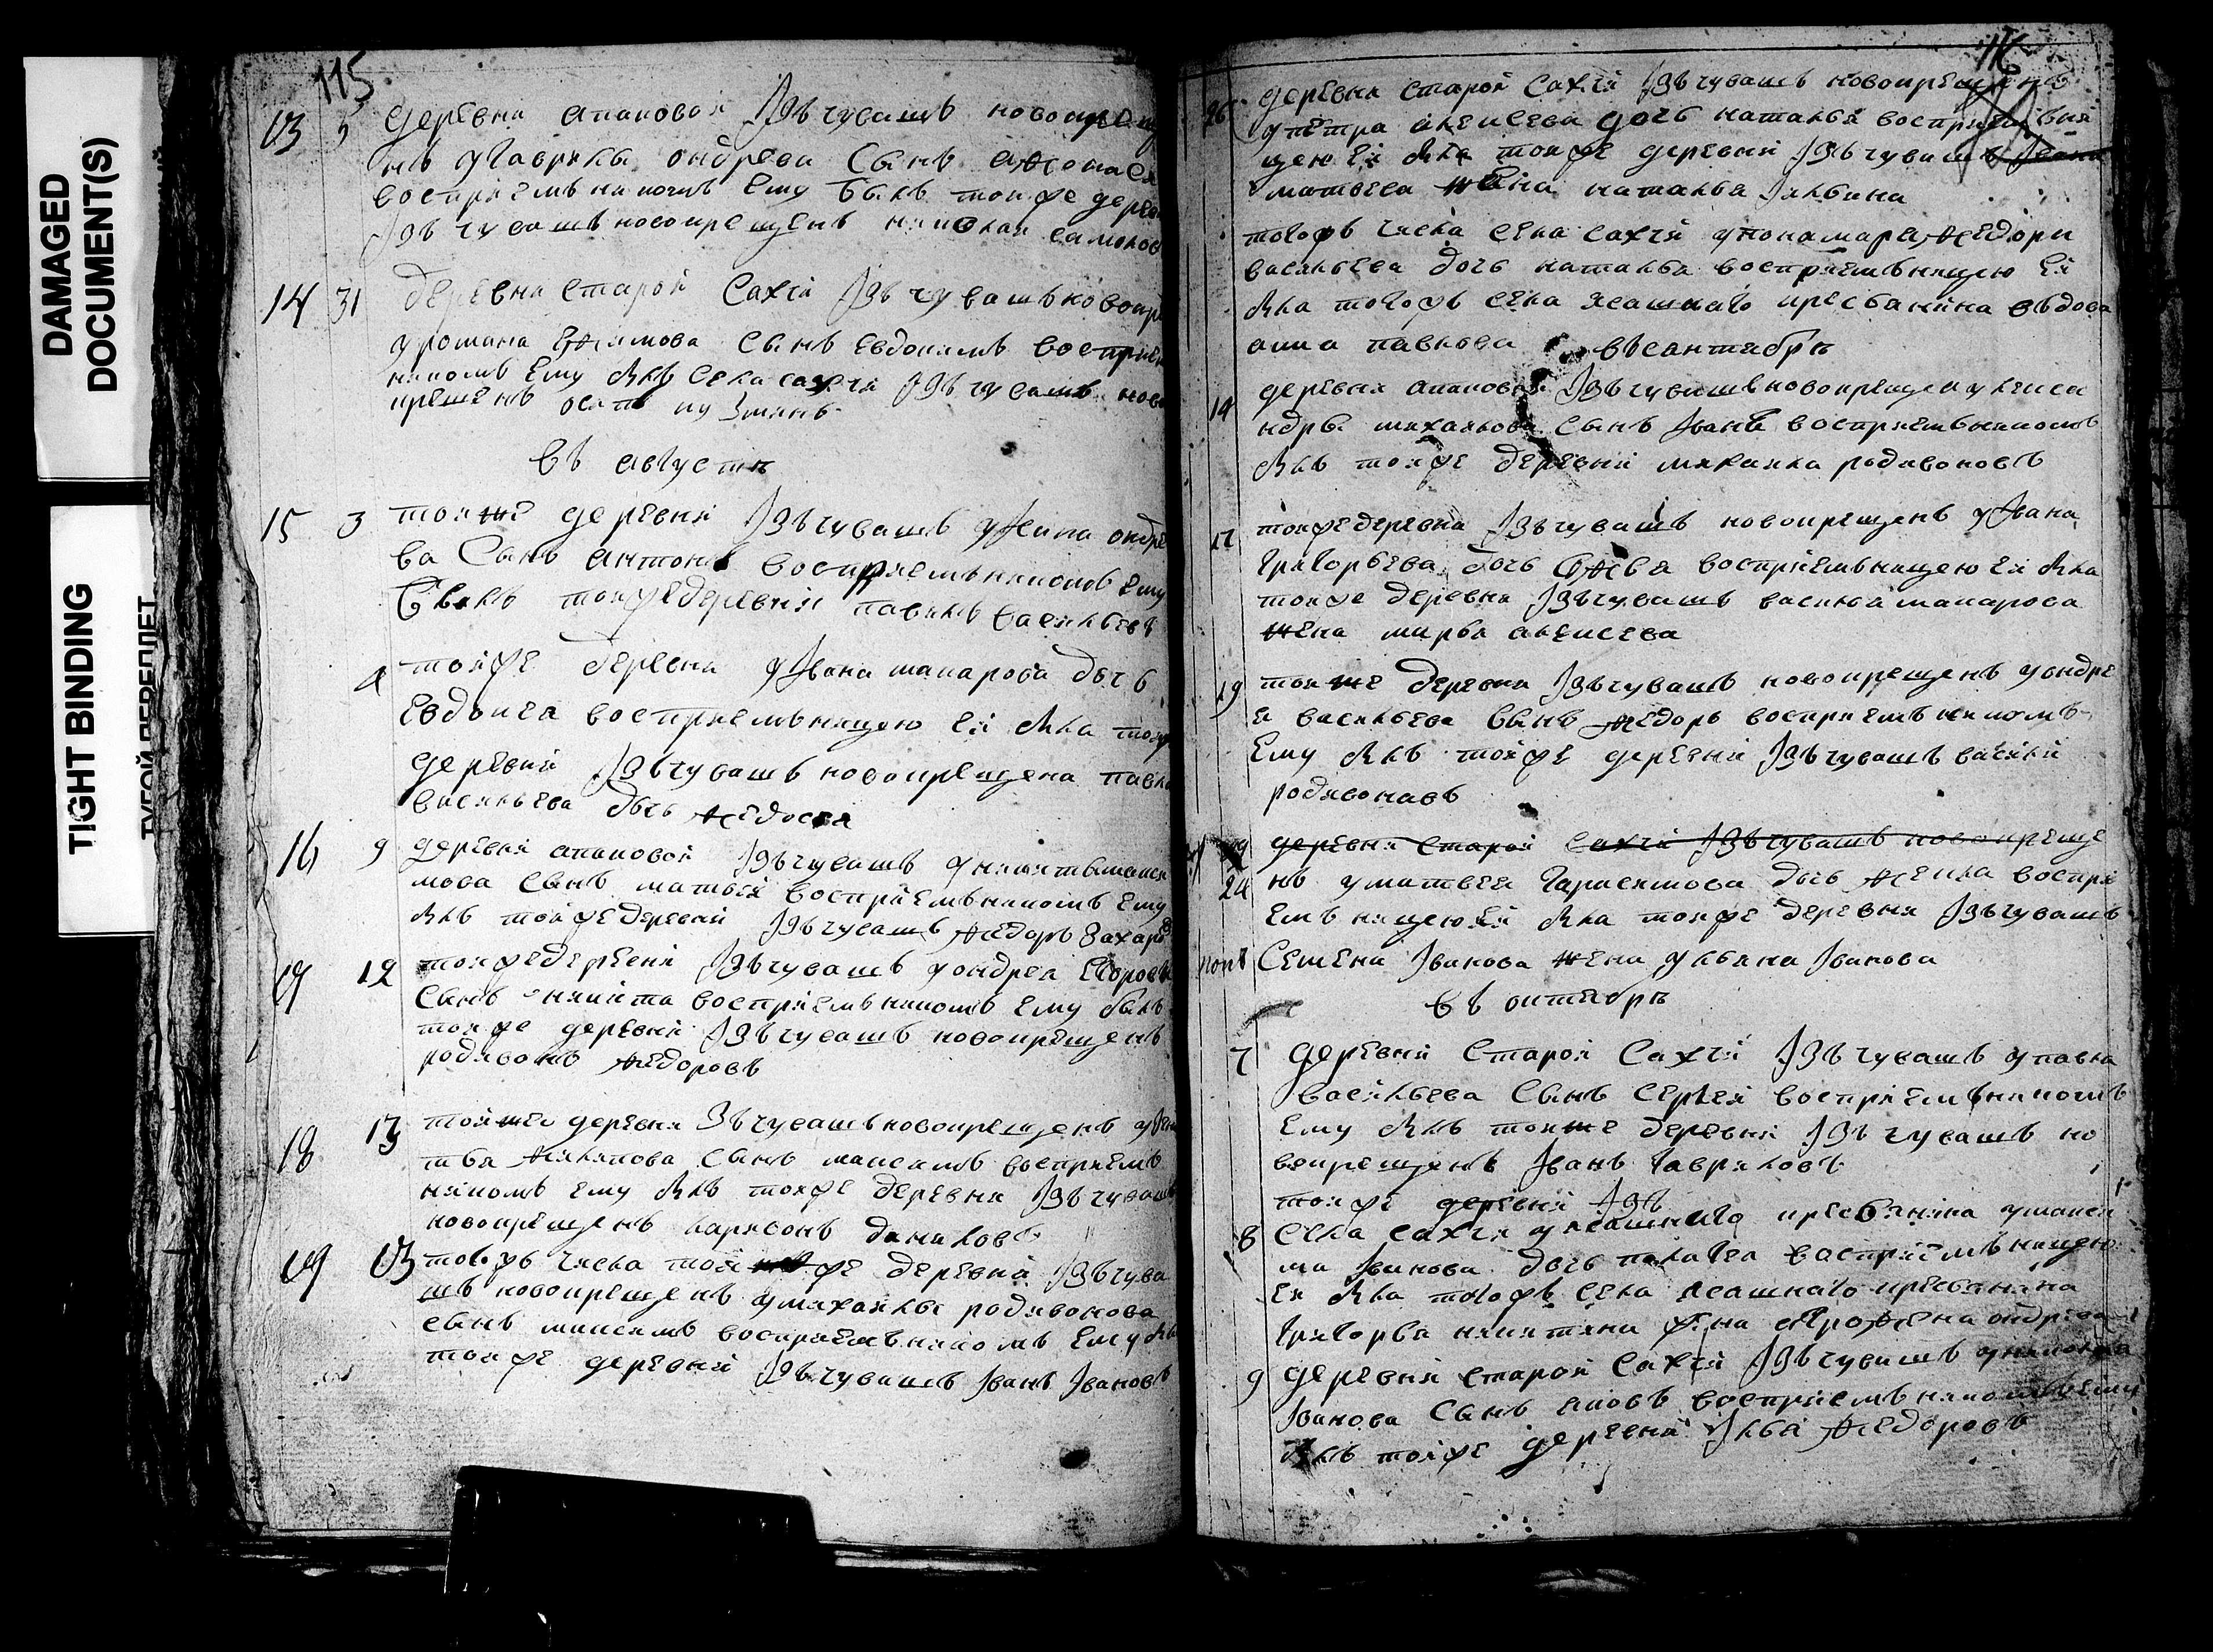 DAMAGED
DOCUMENT(S)
TIGHT BINDING
ТУГОЙ ПЕРЕПЛЕТ
115
13 5 деревни апаковой Iзъ чувашъ новокрещ
нъ у Гаврилы ондреева сынъ
восприемъникомъ ему былъ тояже дерев
Iзъ чувашъ новокрещенъ николаи самоилов
14 31 деревни старой Сахчи Iзъ чувашъ новокр
у романа ефимова сынъ Евдокимъ восприем
никомъ Ему былъ села сахчи Iзъ чувашъ ново
крещенъ осипъ кузминъ
въ августѣ
15 3 тояже деревни Iзъ чувашъ у Iкима ондре
ва Сынъ антонъ восприемъникомъ ему
былъ тояже деревни павилъ васильевъ
4 тояже деревни у Iвана макарова дочь
Евдокея восприемъницею Ея была тояже
деревни Iзъ чувашъ новокрещена павла
васильева дочь Федосея
16 9 деревни апаковой Iзъ чувашъ у никиты макси
мова сынъ матвей восприемъникомъ ему
былъ тояже деревни Iзъ чувашъ Федоръ Захаров
17 12 тояже деревни Iзъ чувашъ у ондрея Егорова
сынъ никита восприемъникомъ Ему былъ
тояже деревни Iзъ чувашъ новокрещенъ
родивонъ Федоровъ
18 13 тояже деревни Iзъ чувашъ новокрещенъ у
Филипова сынъ максимъ восприемъ
никомъ Ему былъ тояже деревни Iзъ чувашъ
новокрещенъ ларивонъ даниловъ
19 13 тогожъ числа тояже деревни Iзъ чува
шъ новокрещенъ у михаилы родивонова
сынъ максимъ восприемъникомъ Ему былъ
тояже деревни Iзъ чувашъ Iванъ Iвановъ
116
26 деревни старой Сахчи Iзъ чувашъ новокрещенъ
у петра алексеева дочь наталья восприемъни
цею Ея была тояже деревни Iзъ чувашъ Iвана
матвеева жена наталья Iльина
тогожъ числа села сахчи у понамаря Федора
васильева дочь наталья восприемъницею Ея
была тогожъ села ясашнаго кресьянина въдова
анна павлова
въ сентябрѣ
14 деревни апаковой Iзъ чувашъ новокрещен у алекса
ндры михаилова сынъ Iванъ восприемъникомъ
былъ тояже деревни михаила родивоновъ
17 тояже деревни Iзъ чувашъ новокрещенъ у Iвана
григорьева дочь софья восприемъницею Ея была
тояже деревни Iзъ чувашъ василья макарова
жена марья алексеева
19 тояже деревни Iзъ чувашъ новокрещенъ у ондре
я васильева сынъ Федоръ восприемъникомъ
Ему былъ тояже деревни Iзъ чувашъ василей
родивонавъ
29 деревни старой сахчи Iзъ чувашъ новокреще
24 нъ у матвея герасимова дочь Фекла воспри
емъницею Ея была тояже деревни Iзъ чувашъ
попъ Семена Iванова жена ульяна Iванова
въ октябрѣ
7 деревни Старой Сахчи Iзъ чувашъ у павла
васильева Сынъ Сергей восприемъникомъ
Ему былъ тояже деревни Iзъ чувашъ но
вокрещенъ Iванъ гавриловъ
тояже деревни Iзъ
8 села сахчи у ясашнаго кресьянина у макси
ма Iванова дочь палагея восприемъницею
Ея была тогожъ села ясашнаго кресьянина
григорья никитина жена ографена ондреева
9 деревни старой сахчи Iзъ чувашъ у николая
Iванова сынъ яковъ восприемъникомъ ему
былъ тояже деревни Iлья Федоровъ